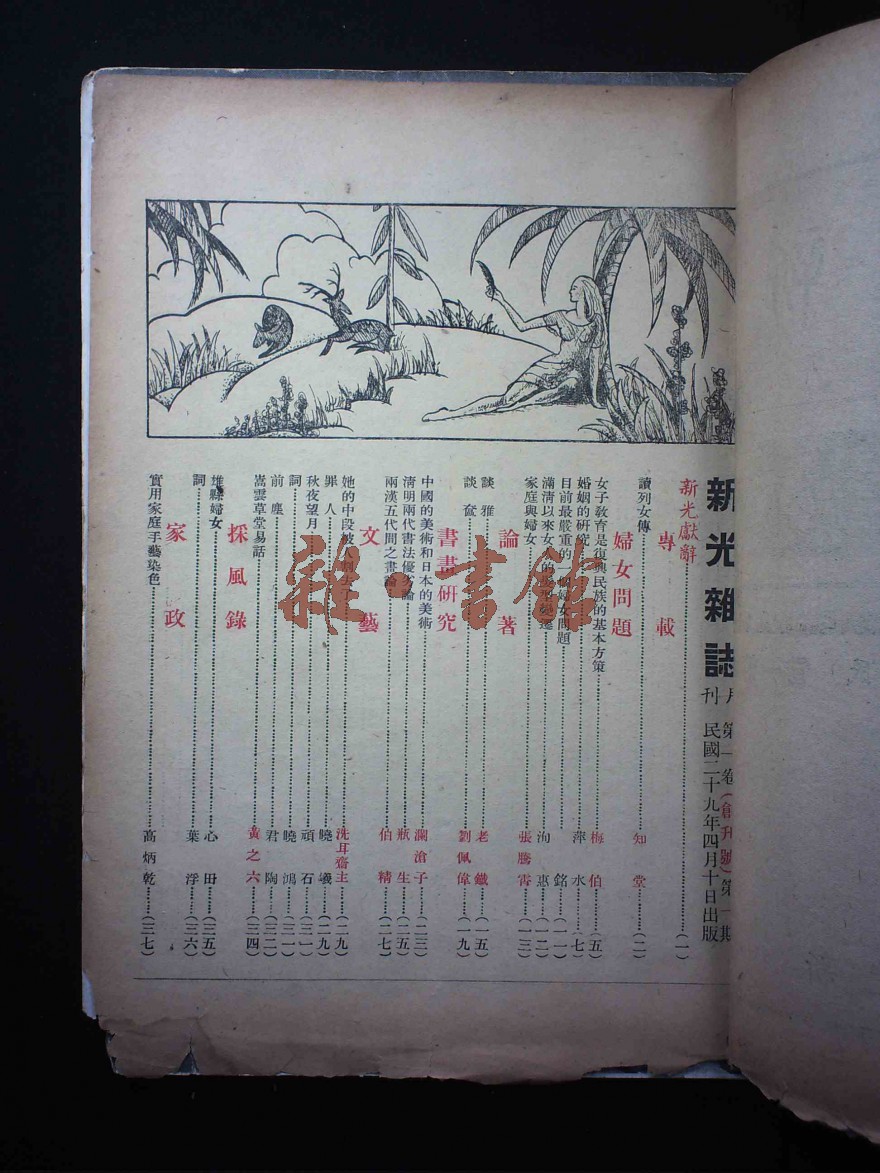 新光雜誌
月刊
第一卷(創刊號)第一期
民國二十九年四月十日出版
新光獻辭……(一)
專載
讀列女傳……知堂……(二)
婦女問題
女子教育是復興民族的基本方策……梅伯……(五)
婚姻的研究……萍水……(七)
目前最嚴重的一個婦女問題……銘……(一一)
滿清以來女人的變遷……洵惠……(一二)
家庭與婦女……張騰霄……(一三)
論著
談雅……老鐵……(一五)
談奩……劉佩偉……(一九)
書畫研究
中國的美術和日本的美術……瀾滄子……(二三)
清明兩代書法優劣論……瓶生……(二五)
兩漢五代間之書論……伯精……(二七)
文藝
她的中段被人割去了……洗耳齋主……(二九)
罪人……曉……(二九)
秋夜望月……頑石……(三一)
詞……曉鴻……(三一)
前塵……君陶……(三二)
嵩雲草堂易話……黃之六……(三四)
採風錄
雄縣婦女……心田……(三五)
詞……葉浮……(三六)
家政
實用家庭手藝染色……高炳乾……(三七)
雜·書館